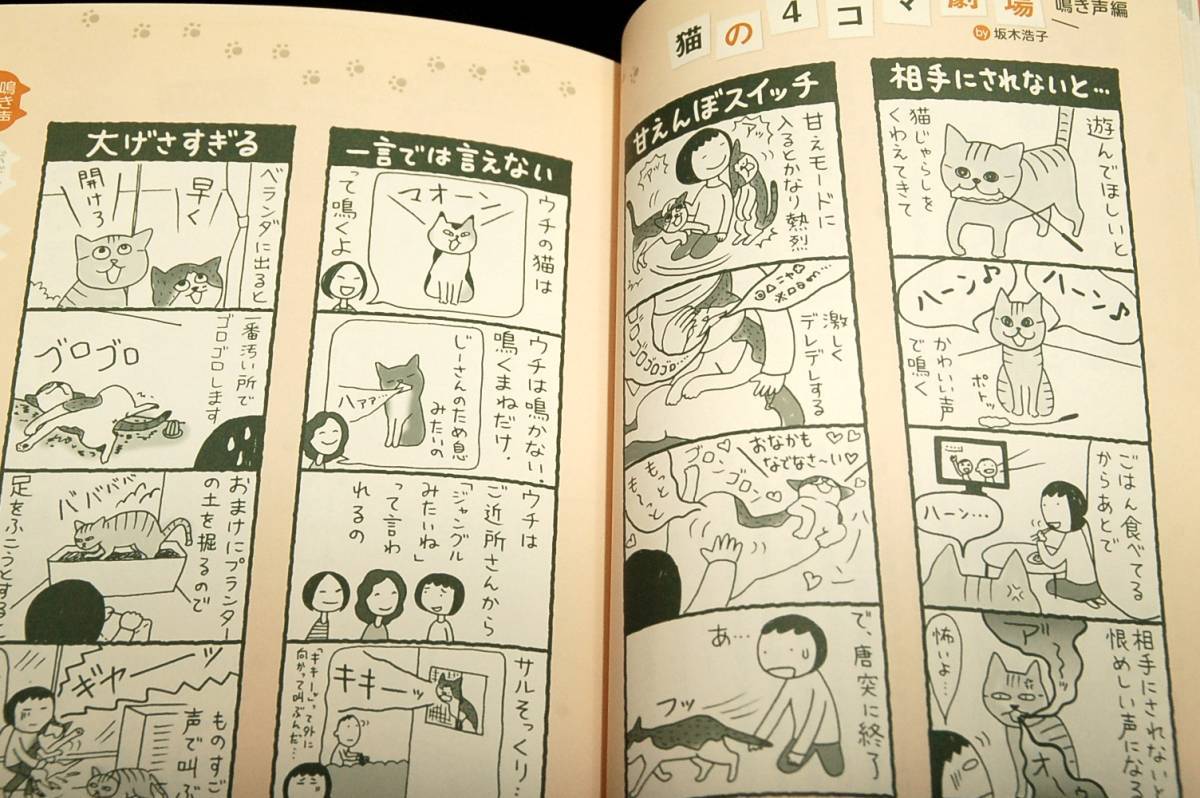 猫の4コマ劇場
鳴き声編
by 坂木浩子
相手にされないと…
遊んでほしいと
猫じゃらしを
くわえてきて
ハーン♪
ハーン♪
かわいい声
で鳴く
ポトッ
ごはん食べてる
からあとで
ハーン…
相手にされないと
恨めしい声になる
怖いよ…
ア〜
オ〜
甘えんぼスイッチ
甘えモードに
入るとかなり熱烈
アッ
アッ
激しく
デレデレする
ゴロゴロゴロ…
おなかも
なでなさ〜い♡
ゴロン
ゴロン
もっと
もっと
ハ
ン
で、唐突に終了
あ…
フッ
一言では言えない
ウチの猫は
マオーン
って鳴くよ
ウチは鳴かない。
鳴くまねだけ。
じーさんのため息
みたいの
ハァァ
ウチは
ご近所さんから
「ジャングル
みたいね」
って言わ
れるの
サルそっくり…
キキーッ
「キキーッ」って外に
向かって叫ぶんだ…
鳴き声
大げさすぎる
ベランダに出ると
早く
開けろ
一番汚い所で
ゴロゴロします
ゴロゴロ
おまけにプランター
の土を掘るので
足をふこうとすると
バババババ
ギャーッ
ものすご
声で叫ぶ